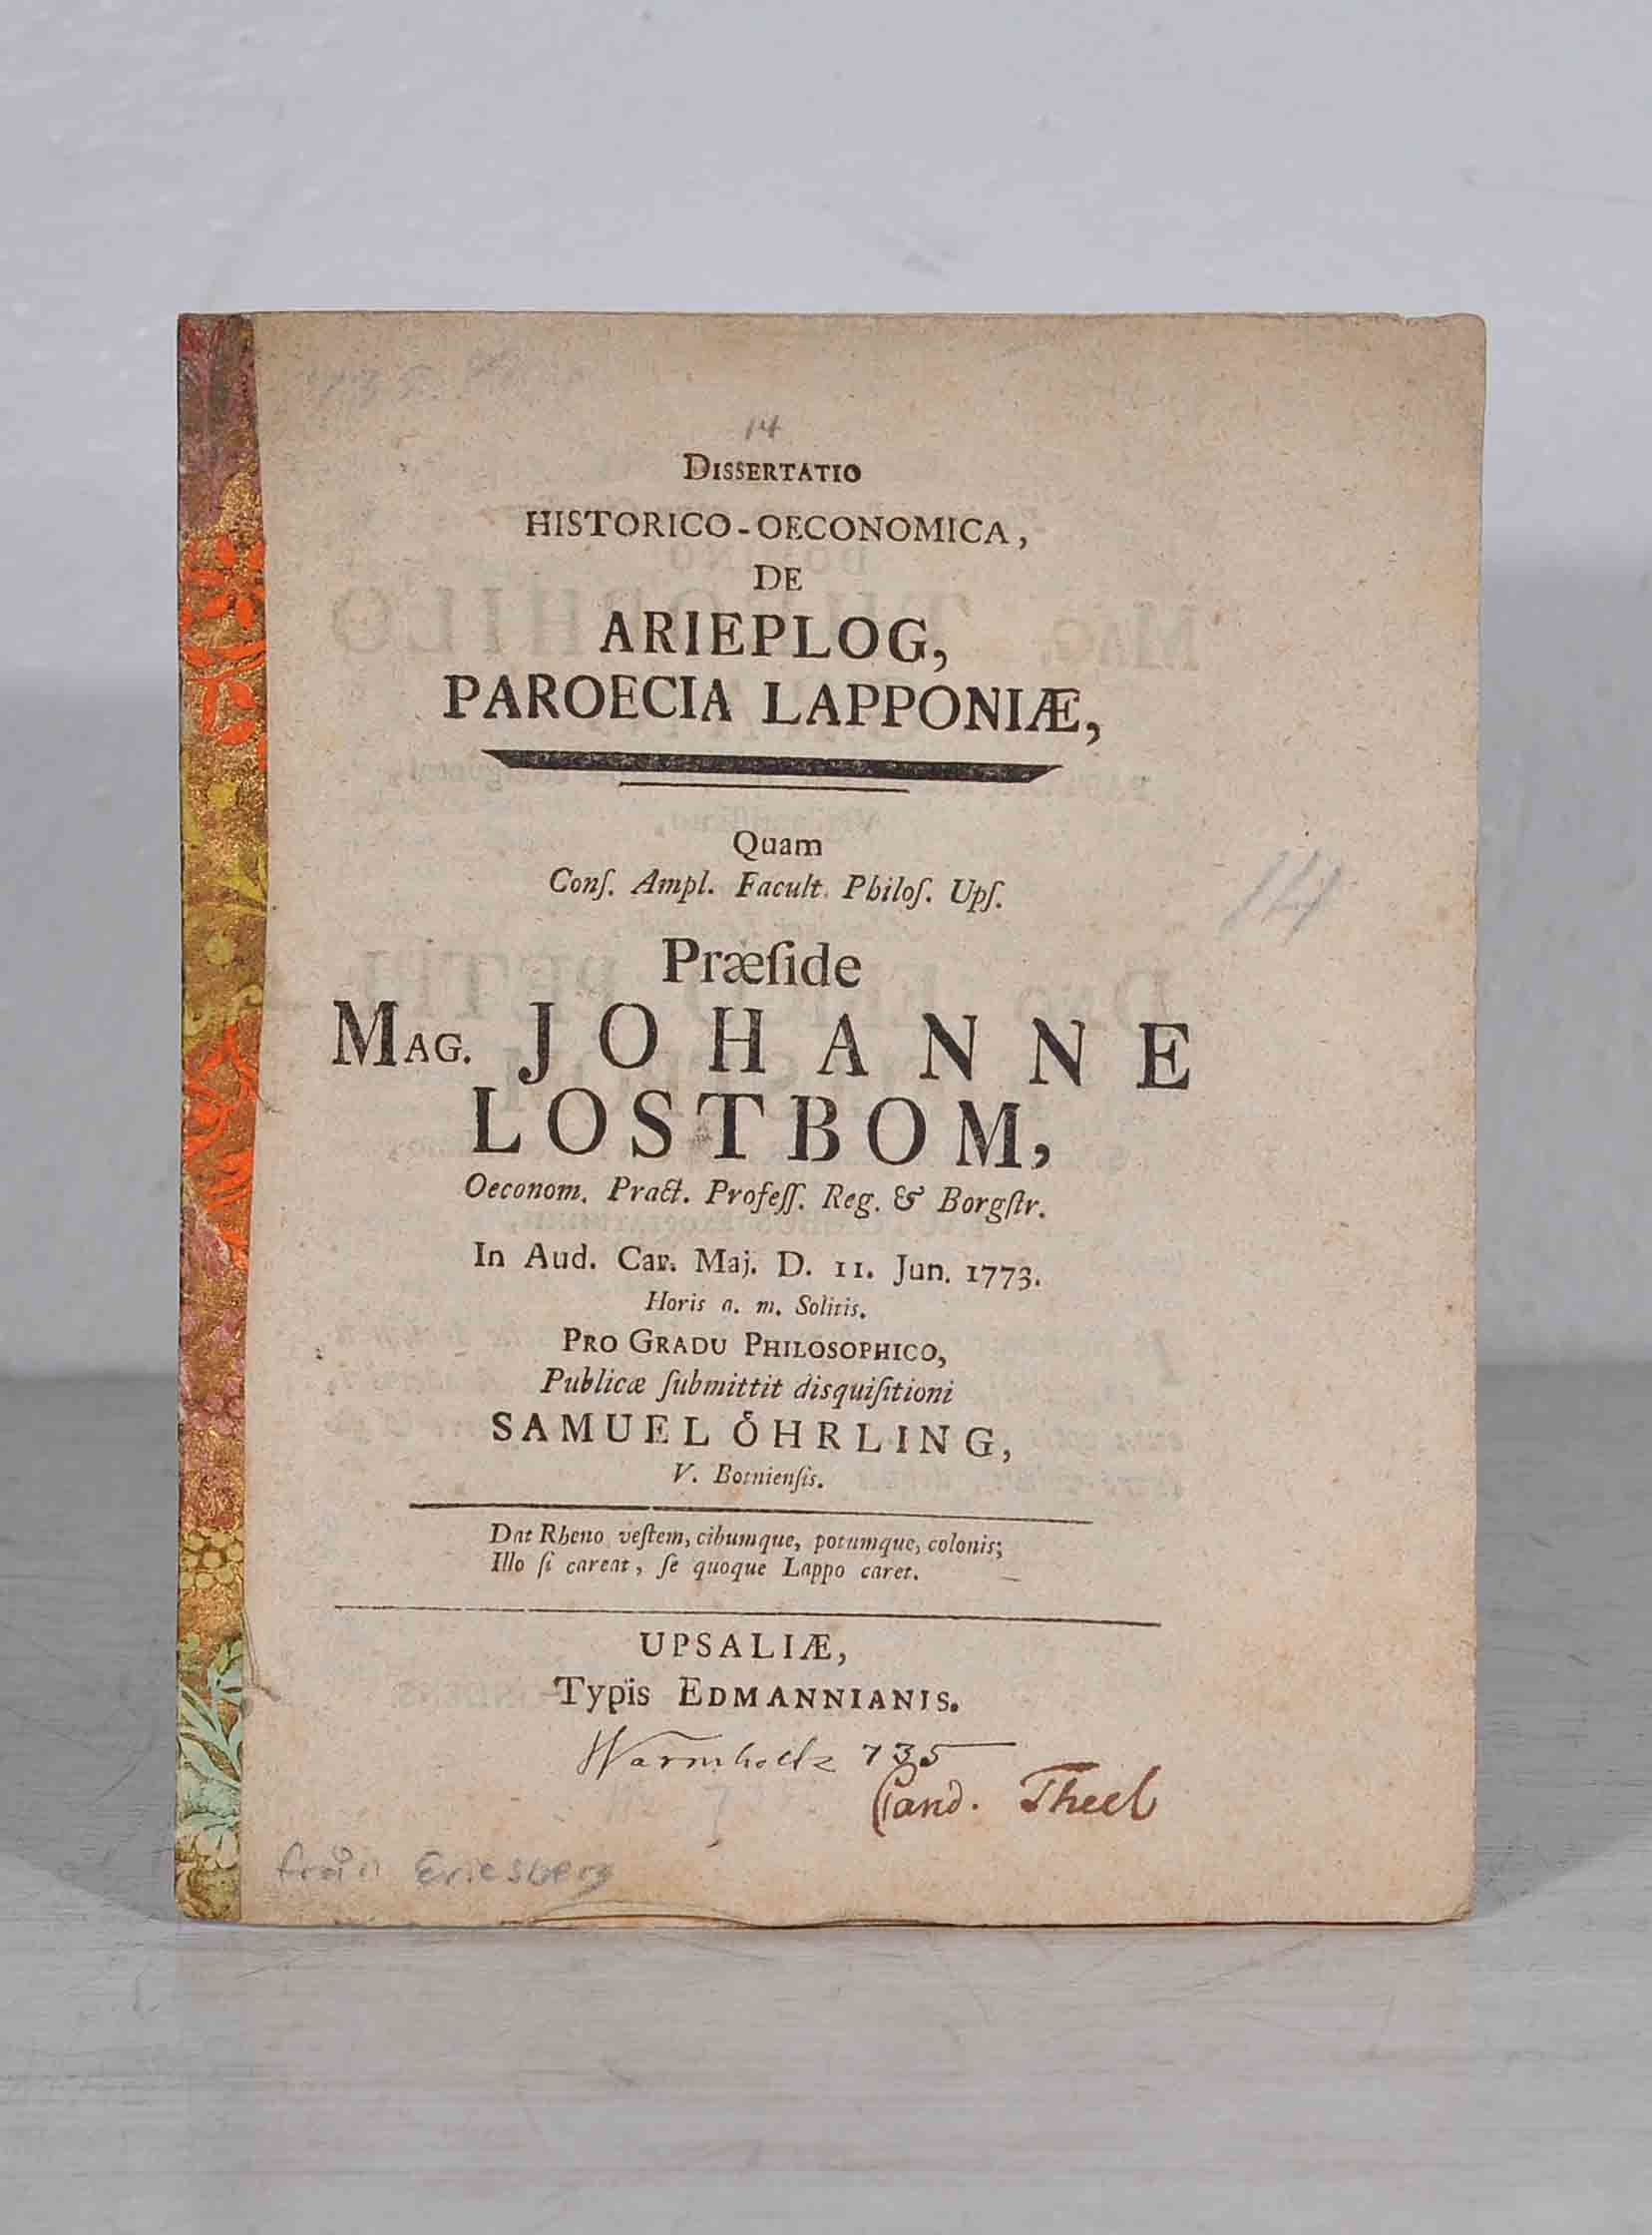 14
DISSERTATIO
HISTORICO-OECONOMICA,
DE
ARIEPLOG,
PAROECIA LAPPONIÆ,
Quam
Conſ. Ampl. Facult. Philoſ. Upſ.
Præſide
MAG. JOHANNE
LOSTBOM,
Oeconom. Pract. Profeſſ. Reg. & Borgſtr.
In Aud. Car. Maj. D. 11. Jun. 1773.
Horis a. m. Solitis.
PRO GRADU PHILOSOPHICO,
Publicæ ſubmittit disquiſitioni
SAMUEL ÖHRLING,
V. Botnienſis.
Dat Rheno veſtem, cibumque, potumque, colonis;
Illo ſi careat, ſe quoque Lappo caret.
UPSALIÆ,
Typis EDMANNIANIS.
Warmholtz 735
Cand. Theel
från Ericsberg
114